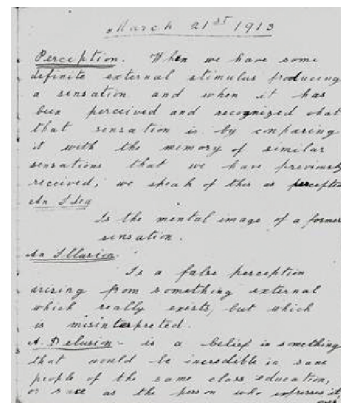 March 21st 1913
Perception. When we have some
definite external stimulus producing
a sensation and when it has
been perceived and recognized what
that sensation is by comparing
it with the memory of similar
sensations that we have previously
received, we speak of this as
An Idea
Is the mental image of a former
sensation.
An Illusion
Is a false perception
arising from something external
which really exists, but which
is misinterpreted.
A Delusion - is a belief in something
that would be incredible in sane
people of the same class education,
or race as the person who expresses it